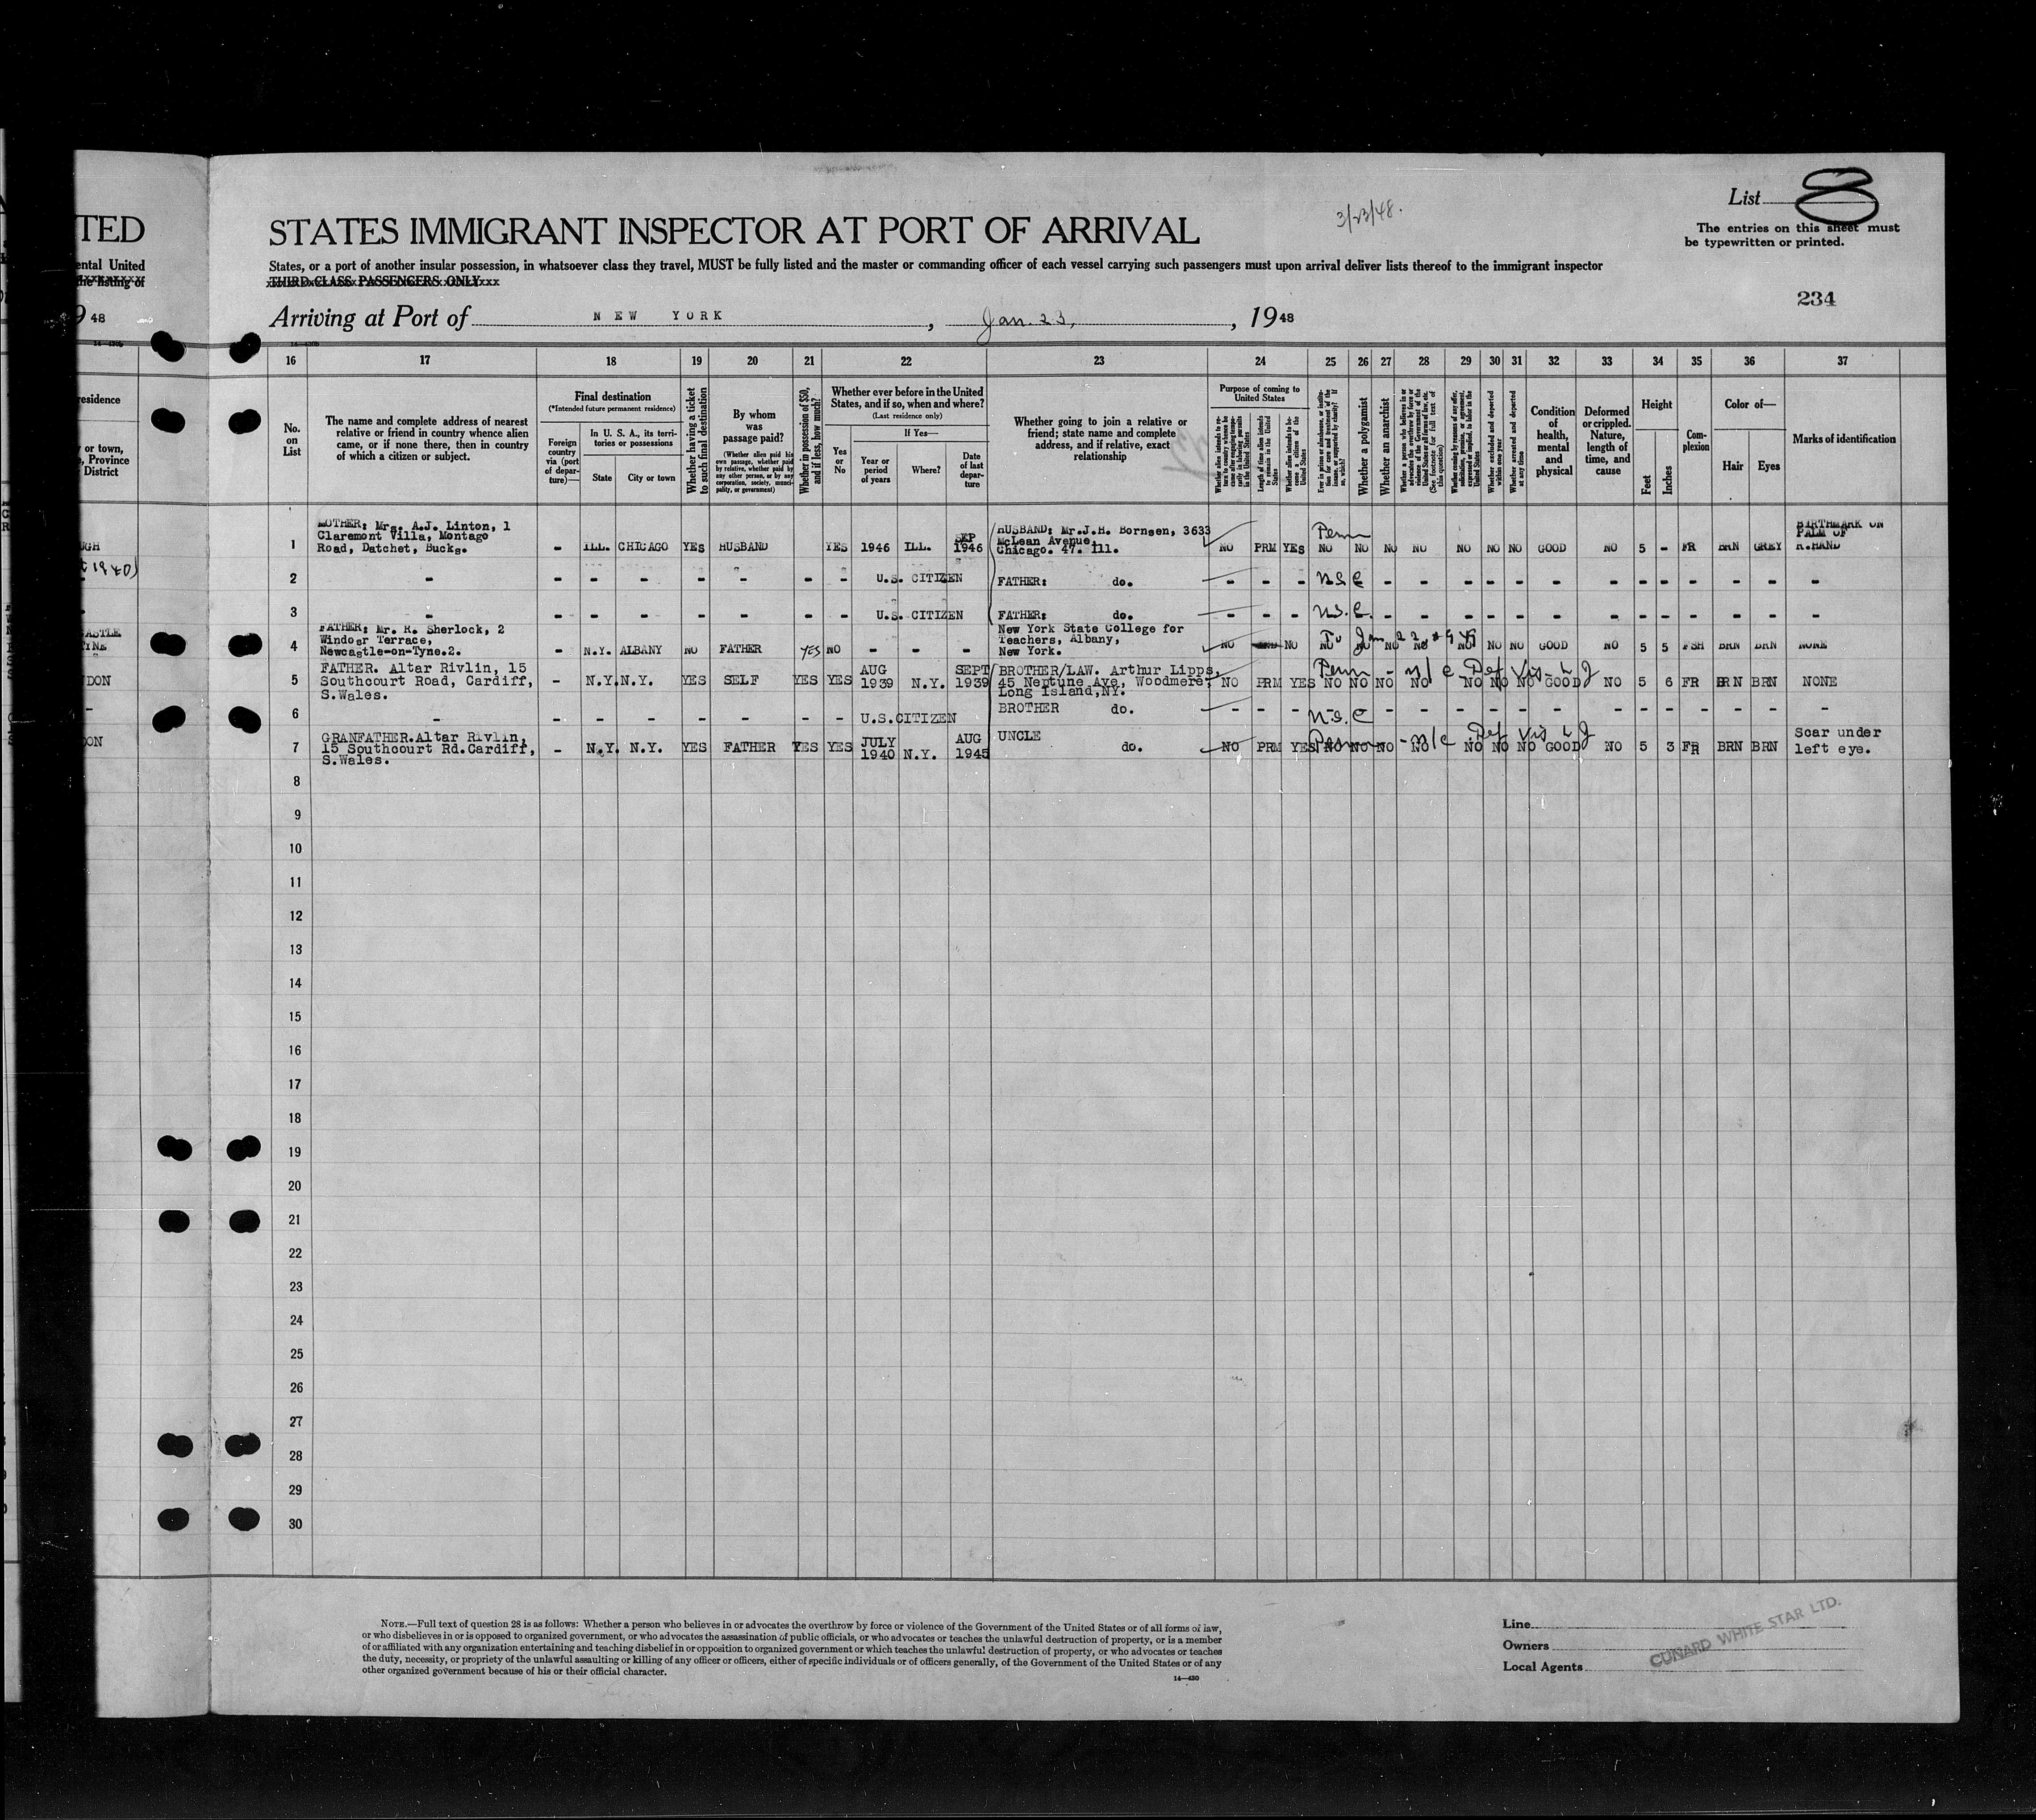 List 8
3/23/48.
TED
STATES IMMIGRANT INSPECTOR AT PORT OF ARRIVAL
The entries on this sheet must
be typewritten or printed.
ental United
States, or a port of another insular possession, in whatsoever class they travel, MUST be fully listed and the master or commanding officer of each vessel carrying such passengers must upon arrival deliver lists thereof to the immigrant inspector
the listing of
THIRD-CLASS PASSENGERS ONLY
234
9 48
Arriving at Port of NEW YORK, Jan. 23, 1948
16 17 18 19 20 21 22 23 24 25 26 27 28 29 30 31 32 33 34 35 36 37
esidence
or town,
Province
District
No.
on
List
The name and complete address of nearest
relative or friend in country whence alien
came, or if none there, then in country
of which a citizen or subject.
Final destination
(*Intended future permanent residence)
Foreign
country
via (port
of depar-
ture)—
In U. S. A., its terri-
tories or possessions
State
City or town
Whether having a ticket
to such final destination
By whom
was
passage paid?
(Whether alien paid his
own passage, whether paid
by relative, whether paid by
any other person, or by any
corporation, society, munici-
pality, or government)
Whether in possession of $50,
and if less, how much?
Whether ever before in the United
States, and if so, when and where?
(Last residence only)
Yes
or
No
If Yes—
Year or
period
of years
Where?
Date
of last
depar-
ture
Whether going to join a relative or
friend; state name and complete
address, and if relative, exact
relationship
Purpose of coming to
United States
Whether alien intends to re-
turn to country whence he
came after engaging tempo-
rarily in laboring pursuits
in the United States
Length of time alien intends
to remain in the United
States
Whether alien intends to be-
come a citizen of the
United States
Ever in prison or almshouse, or institu-
tion for care and treatment of the
insane, or supported by charity? If
so, which?
Whether a polygamist
Whether an anarchist
Whether a person who believes in or
advocates the overthrow by force or
violence of the Government of the
United States or all forms of law, etc.
(See footnote for full text of
this question)
Whether coming by reason of any offer,
solicitation, promise, or agreement,
expressed or implied, to labor in the
United States
Whether excluded and deported
within one year
Whether arrested and deported
at any time
Condition
of
health,
mental
and
physical
Deformed
or crippled.
Nature,
length of
time, and
cause
Height
Feet
Inches
Com-
plexion
Color of—
Hair
Eyes
Marks of identification
MOTHER: Mrs. A.J. Linton, 1
Claremont Villa, Montago
Road, Datchet, Bucks.
1 - ILL. CHICAGO YES HUSBAND YES 1946 ILL. SEP 1946
HUSBAND: Mr.J.H. Bornsen, 3633
McLean Avenue,
Chicago. 47. Ill.
NO PRM YES Perm NO NO NO NO NO NO NO GOOD NO 5 - FR BRN GREY
BIRTHMARK ON
PALM OF
R.HAND
2 - - - - - - - - U.S. CITIZEN FATHER: do. - - - U.S.C - - - - - - - - - - - - - -
3 - - - - - - - - U.S. CITIZEN FATHER: do. - - - U.S.C. - - - - - - - - - - - - - -
FATHER: Mr. R. Sherlock, 2
Windosr Terrace,
Newcastle-on-Tyne.2.
4 - N.Y. ALBANY NO FATHER YES NO - - -
New York State College for
Teachers, Albany,
New York.
NO NO NO NO NO NO NO NO NO GOOD NO 5 5 FSH BRN BRN NONE
FATHER. Altar Rivlin, 15
Southcourt Road, Cardiff,
S.Wales.
5 - N.Y. N.Y. YES SELF YES YES AUG 1939 N.Y. SEPT 1939
BROTHER/LAW. Arthur Lipps,
45 Neptune Ave, Woodmere,
Long Island,NY.
NO PRM YES Perm NO NO NO NO NO NO NO GOOD NO 5 6 FR BRN BRN NONE
6 - - - - - - - - U.S.CITIZEN BROTHER do. - - - U.S.C - - - - - - - - - - - - -
GRANFATHER.Altar Rivlin,
15 Southcourt Rd.Cardiff,
S.Wales.
7 - N.Y. N.Y. YES FATHER YES YES JULY 1940 N.Y. AUG 1945
UNCLE
do.
NO PRM YES Perm NO NO NO NO NO NO NO GOOD NO 5 3 FR BRN BRN
Scar under
left eye.
8
9
10
11
12
13
14
15
16
17
18
19
20
21
22
23
24
25
26
27
28
29
30
NOTE.—Full text of question 28 is as follows: Whether a person who believes in or advocates the overthrow by force or violence of the Government of the United States or of all forms of law,
or who disbelieves in or is opposed to organized government, or who advocates the assassination of public officials, or who advocates or teaches the unlawful destruction of property, or is a member
of or affiliated with any organization entertaining and teaching disbelief in or opposition to organized government or which teaches the unlawful destruction of property, or who advocates or teaches
the duty, necessity, or propriety of the unlawful assaulting or killing of any officer or officers, either of specific individuals or of officers generally, of the Government of the United States or of any
other organized government because of his or their official character.
14—430
Line
Owners
Local Agents
CUNARD WHITE STAR LTD.